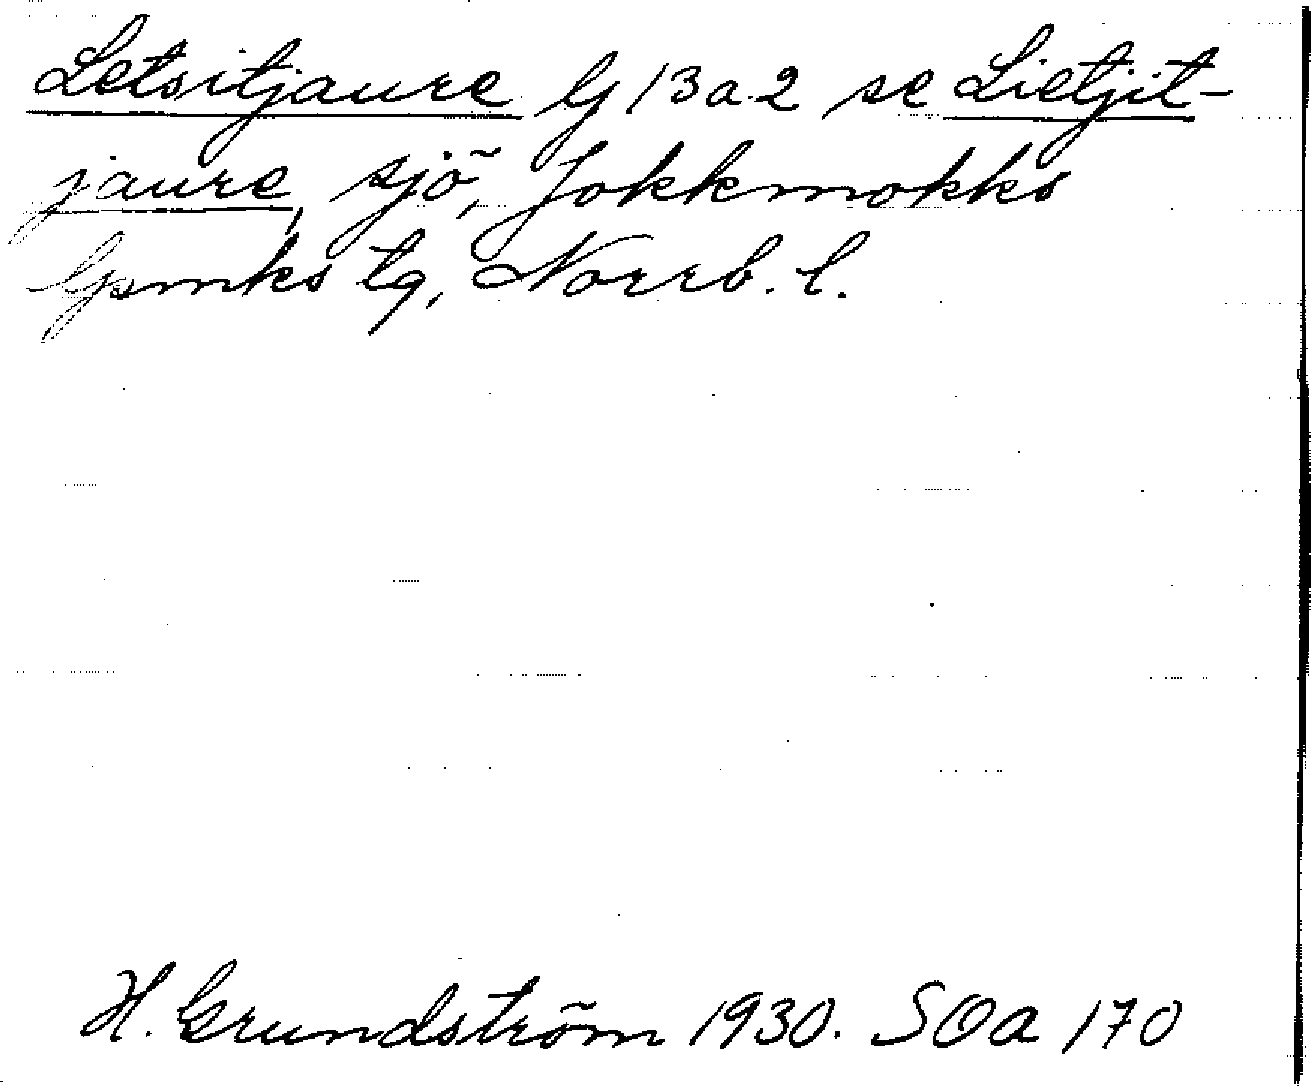 Letsitjaure lj 13 a 2 se Lietjit-
jaure, sjö, Jokkmokks
lpmks tg, Norrb. l.
H. Grundström 1930. SOa 170